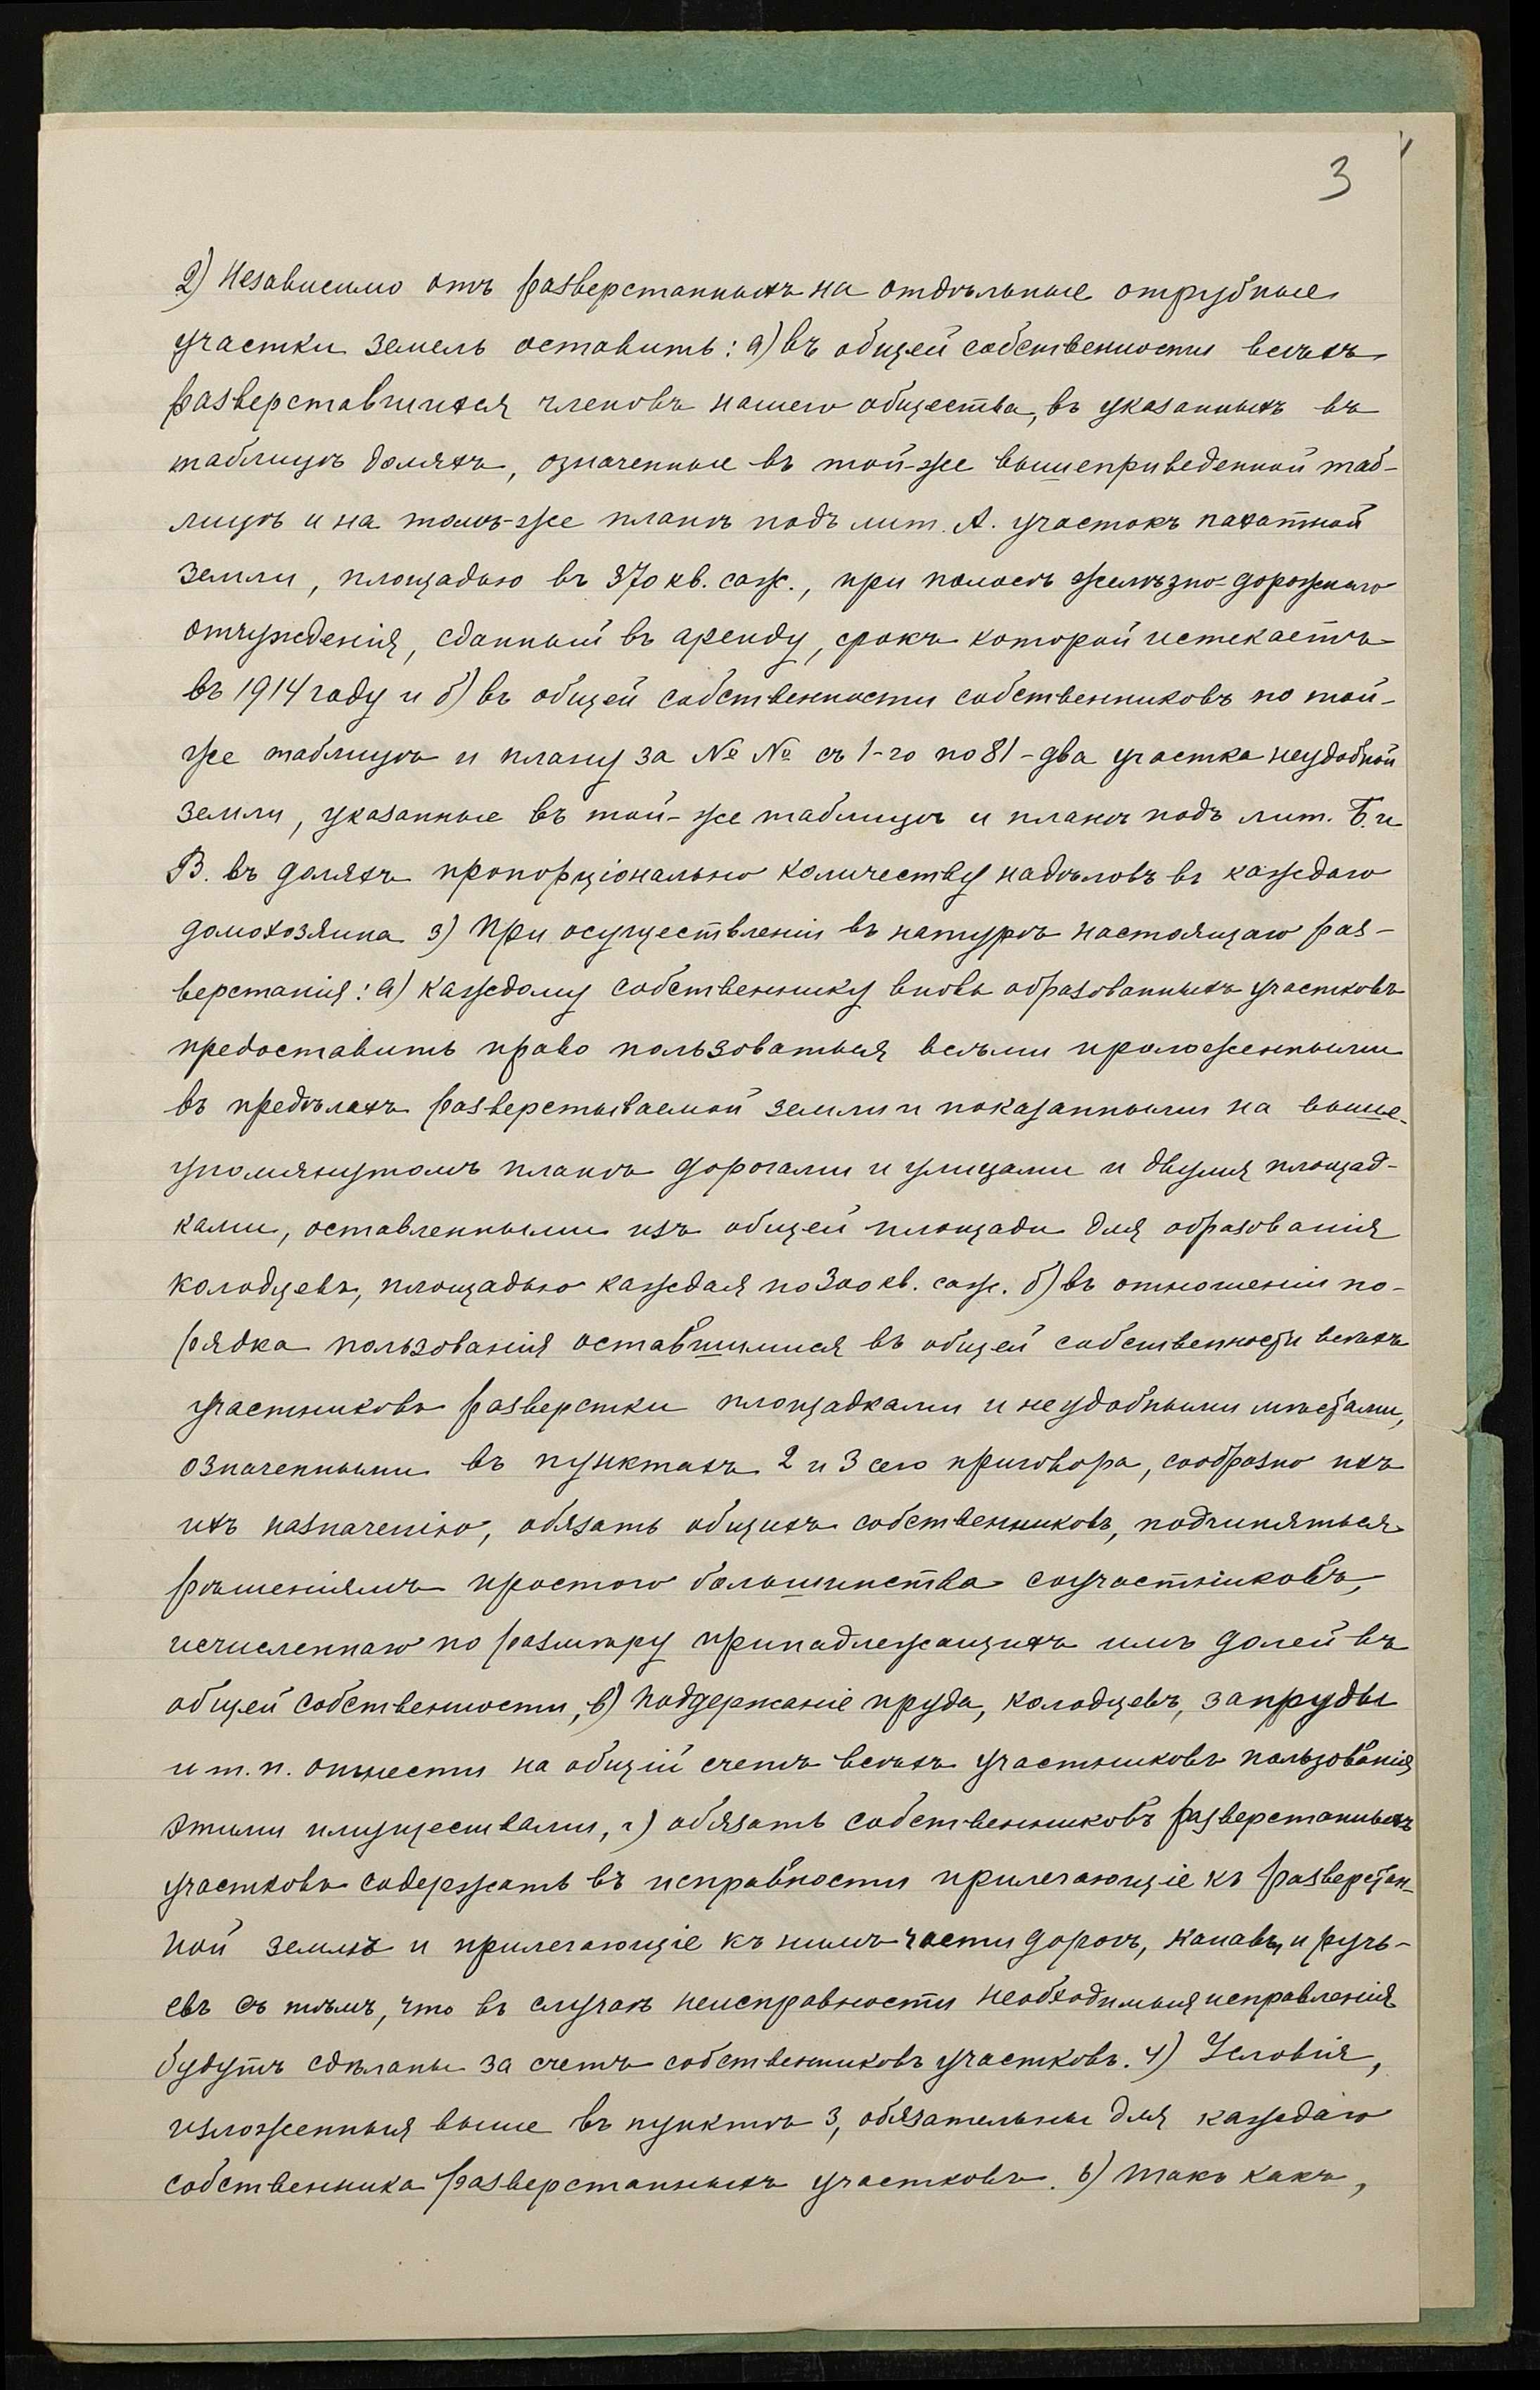 3
2) Независимо отъ разверстанныхъ на отдѣльные отрубные
участки земель оставить: а) въ общей собственности всѣхъ
разверставшихся членовъ нашего общества, въ указанныхъ въ
таблицѣ доляхъ, означенные въ той-же вышеприведенной таб-
лицѣ и на томъ-же планѣ подъ лит. А. участокъ пахатной
земли, площадью въ 370 кв. саж., при полосѣ желѣзно-дорожнаго
отчужденія, сданный въ аренду, срокъ которой истекаетъ
въ 1914 году и б) въ общей собственности собственниковъ по той-
же таблицѣ и плану за №№ съ 1-го по 81 - два участка неудобной
земли, указанные въ той-же таблицѣ и планѣ подъ лит. Б. и
В. въ доляхъ пропорціонально количеству надѣловъ въ каждаго
домохозяина 3) При осуществленіи въ натурѣ настоящаго раз-
верстанія: а) каждому собственнику вновь образованныхъ участковъ
предоставить право пользоваться всѣми проложенными
въ предѣлахъ разверстываемой земли и показанными на выше-
упомянутомъ планѣ дорогами и улицами и двумя площад-
ками, оставленными изъ общей площади для образованія
колодцевъ, площадью каждая по 300 кв. саж. б) въ отношеніи по-
рядка пользованія оставшимися въ общей собственности всѣхъ
участниковъ разверстки площадками и неудобными мѣстами,
означенными въ пунктахъ 2 и 3 сего приговора, сообразно ихъ
ихъ назначенію, обязать общихъ собственниковъ, подчиняться
рѣшеніямъ простого большинства соучастниковъ,
исчисленнаго по размѣру принадлежащихъ имъ долей въ
общей собственности, в) поддержаніе пруда, колодцевъ, запруды
и т. п. отнести на общій счетъ всѣхъ участниковъ пользованія
этими имуществами, г) обязать собственниковъ разверстанныхъ
участковъ содержать въ исправности прилегающіе къ разверстан-
ной землѣ и прилегающіе къ нимъ части дорогъ, канавы и ручь-
евъ съ тѣмъ, что въ случаѣ неисправности необходимыя исправленія
будутъ сдѣланы за счетъ собственниковъ участковъ. 4) Условія,
изложенныя выше въ пунктѣ 3, обязательны для каждаго
собственника разверстанныхъ участковъ. 5) Такъ какъ,